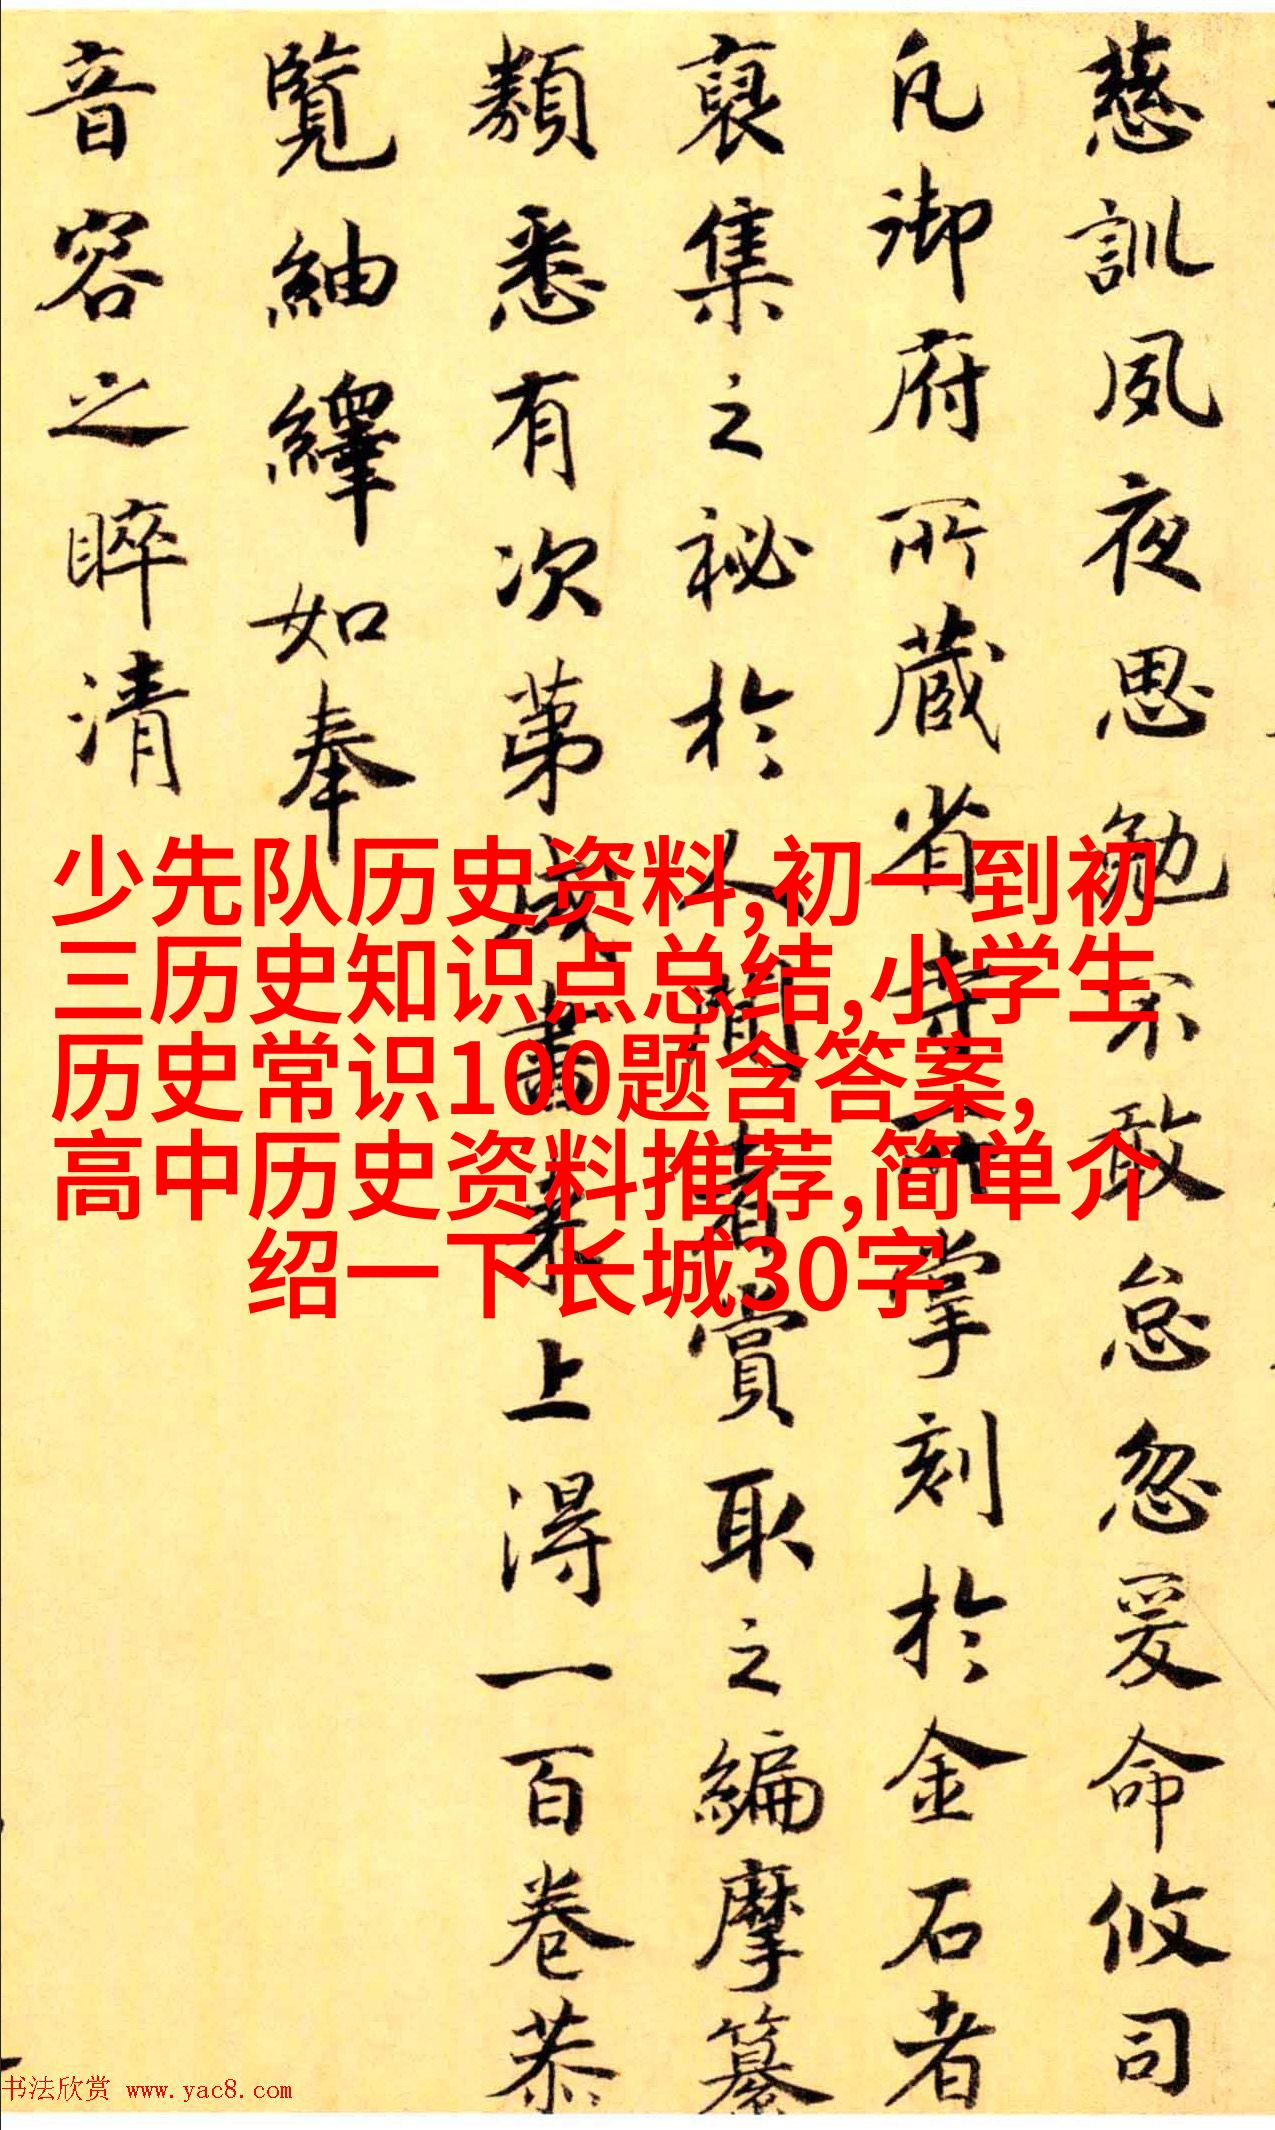 慈訓夙夜思勉不敢怠忽爰命攸司
凡御府所蔵省寺所掌刻於金石者
裒集之祕於人間者賞取之編摩纂
類悉有次第成書來上得一百卷恭
覽紬繹如奉
音容之睟清
少先队历史资料,初一到初
三历史知识点总结,小学生
历史常识100题含答案,
高中历史资料推荐,简单介
绍一下长城30字
书法欣赏 www.yac8.com